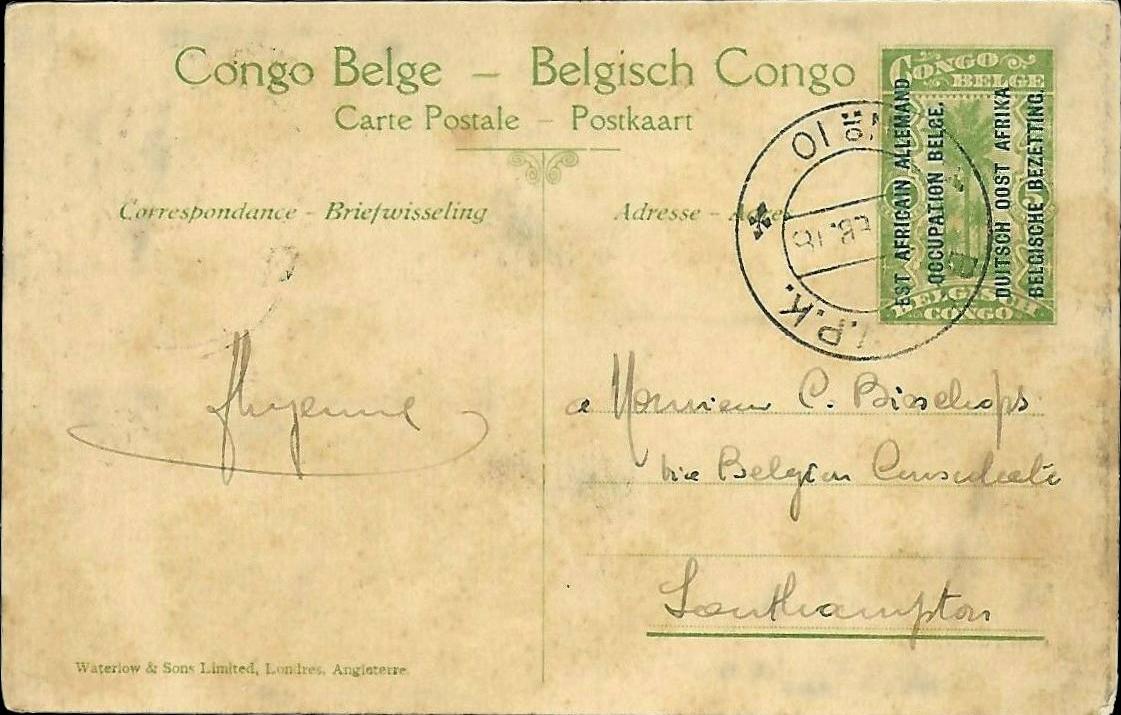 Congo Belge – Belgisch Congo
Carte Postale – Postkaart
Correspondance - Briefwisseling
Adresse - Adres
CONGO
BELGE
EST AFRICAIN ALLEMAND
OCCUPATION BELGE.
DUITSCH OOST AFRIKA
BELGISCHE BEZETTING.
BELGISCH
CONGO
a Monsieur C. Bisschops
via Belgian Consulate
Southampton
Waterlow & Sons Limited, Londres, Angleterre.